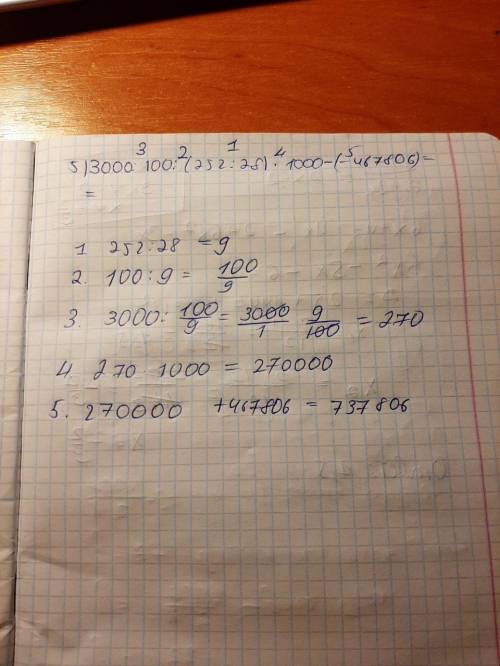 3 2 1 4 5
5) 3000 : 100 : (252 : 28) · 1000 - (-467806) =
=
1 252 : 28 = 9
2. 100 : 9 = 100/9
3. 3000 : 100/9 = 3000/1 9/100 = 270
4. 270 1000 = 270000
5. 270000 +467806 = 737806